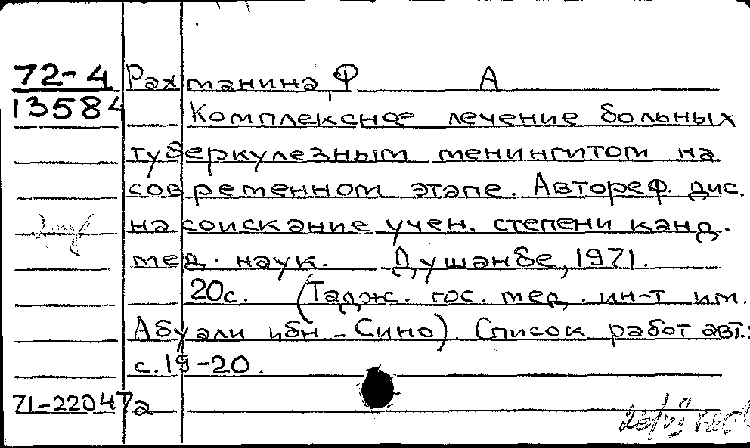 72-4 Рахманина, Ф А
13584 Комплексное лечение больных
туберкулезным менингитом на
современном этапе. Автореф. дис.
на соискание учен. степени канд.
мед. наук. Душанбе, 1971.
20с. (Тадж. гос. мед. ин-т им.
Абуали ибн-Сино). Список работ авт.:
с. 19-20.
71-22047а